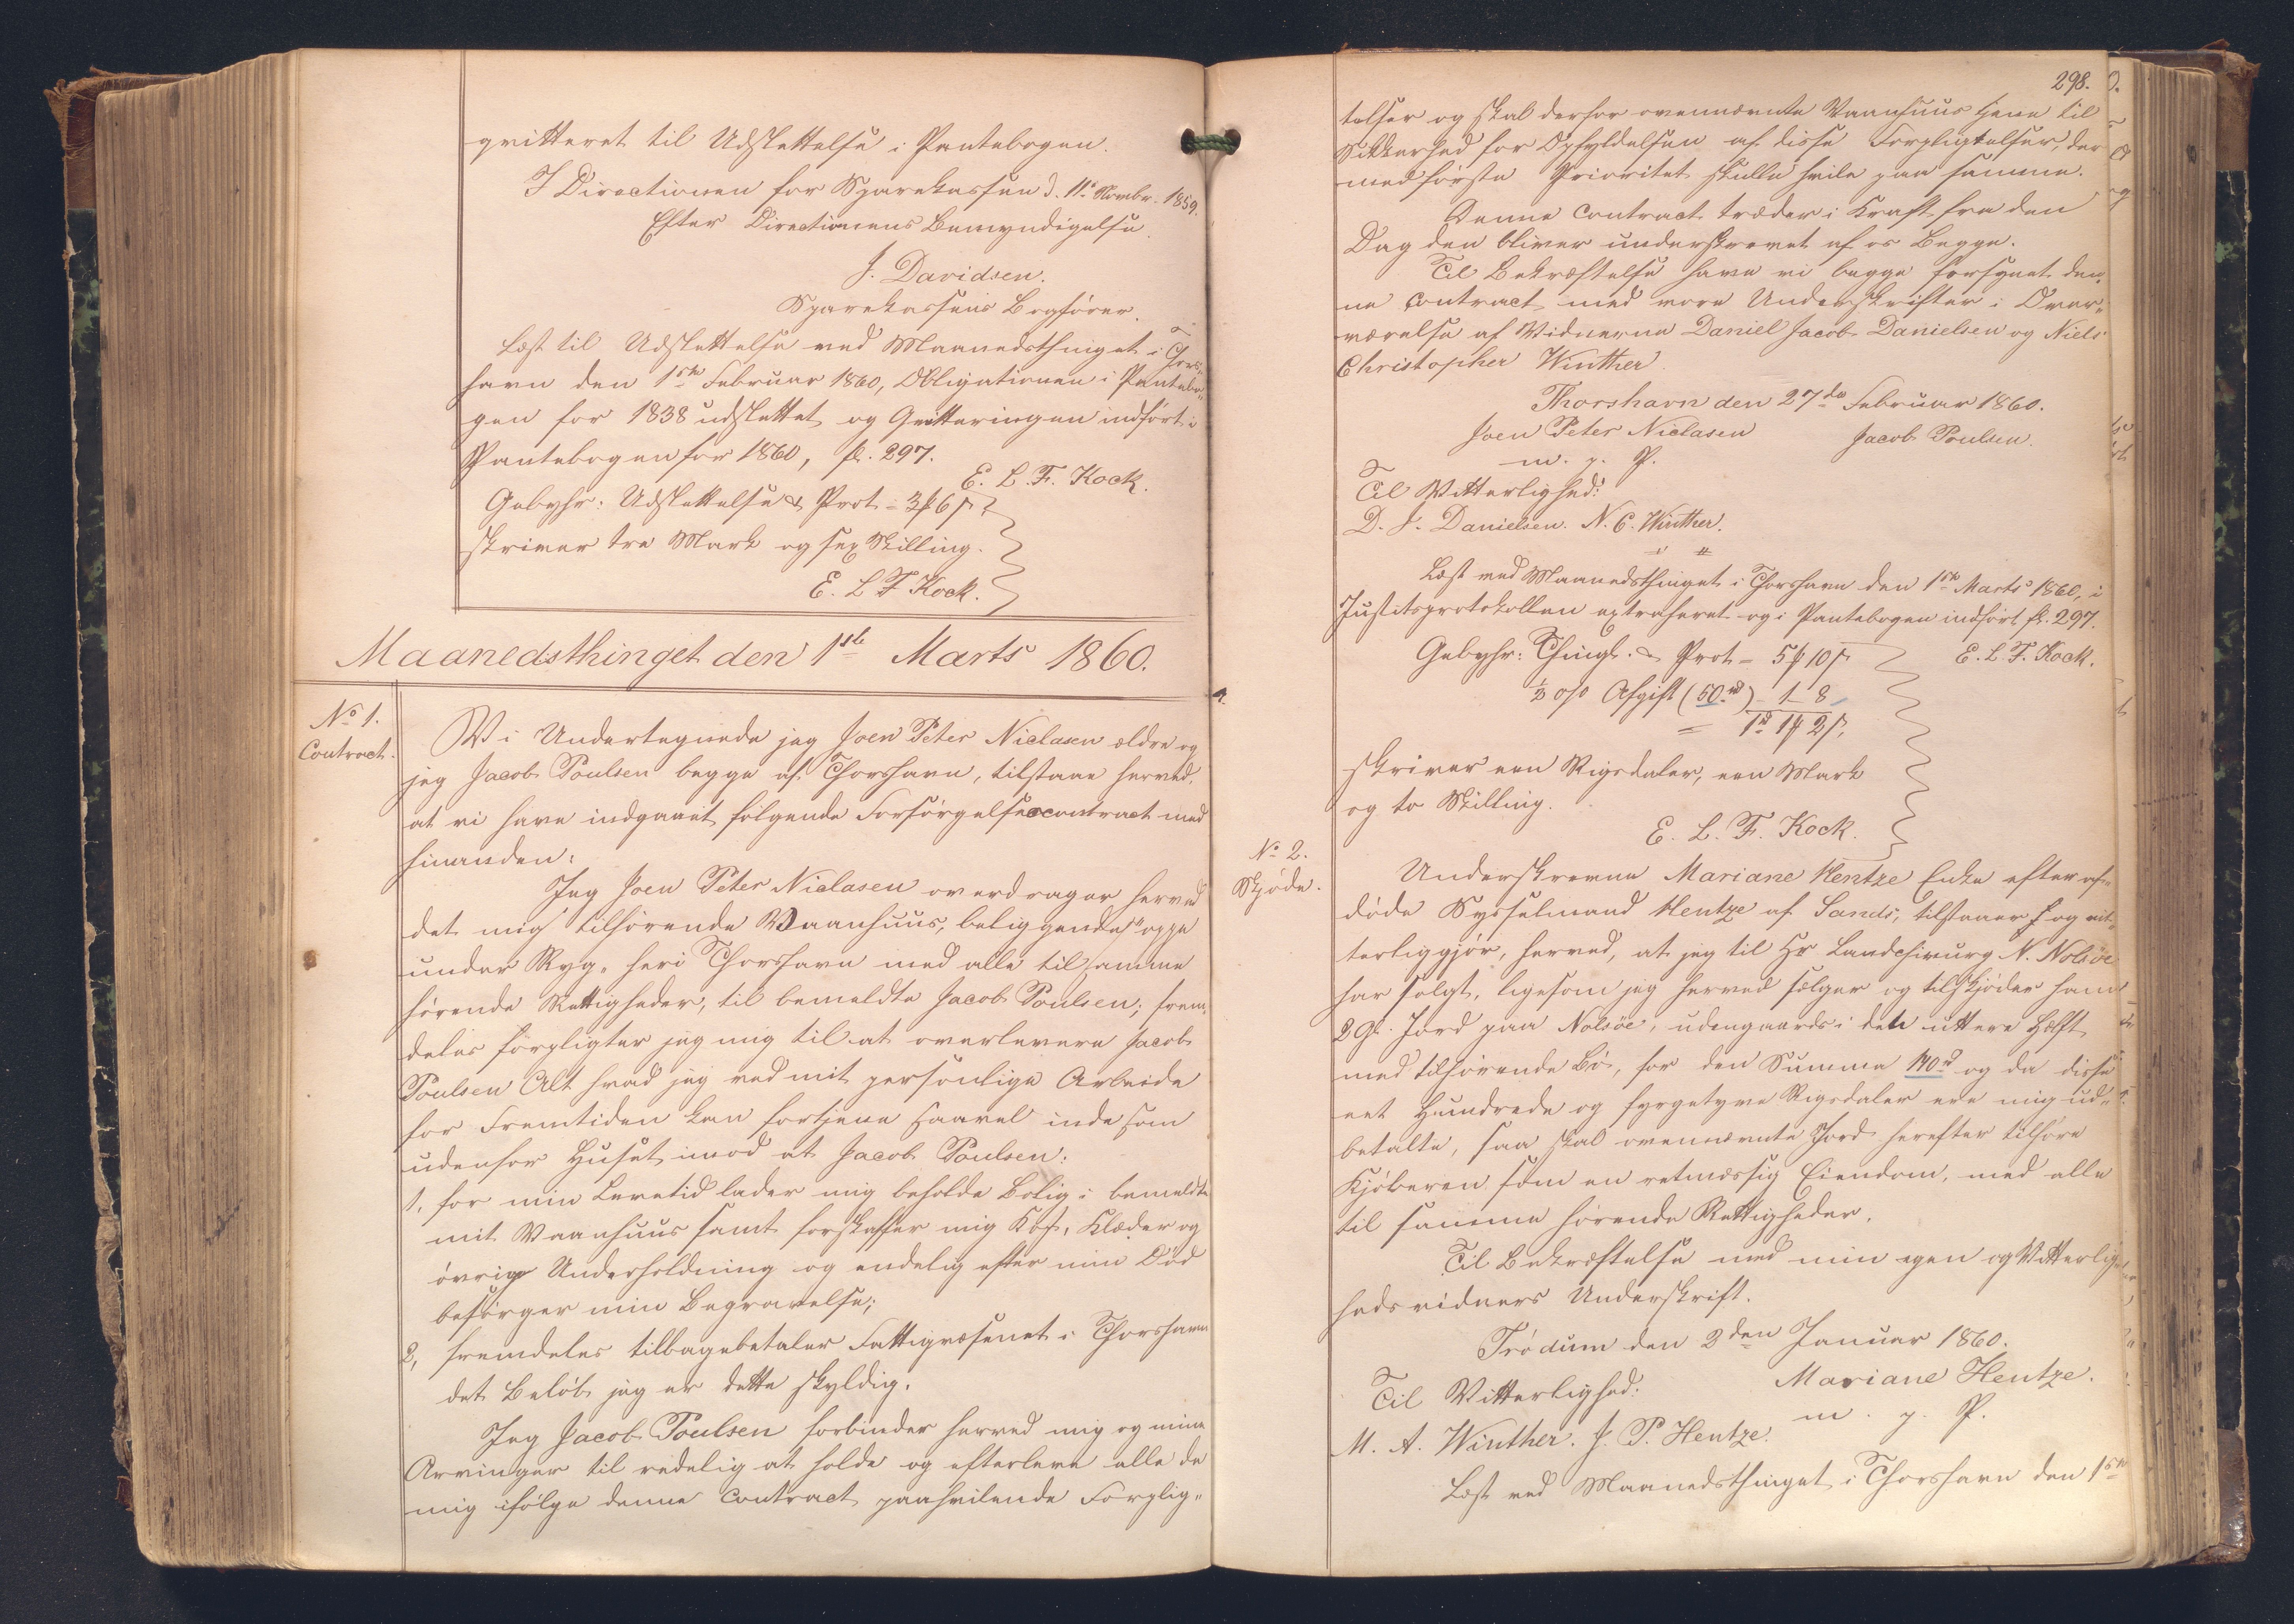 qvitteret til Udslettelse i Pantebogen.
I Directionen for Sparekassen d. 11te Novbr. 1859.
Efter Directionens Bemyndigelse.
J. Davidsen.
Sparekassens Bogfører.
Læst til Udslettelse ved Maanedsthinget i Thors-
havn den 1ste Februar 1860, Obligationen i Pantebo-
gen for 1838 udslettet og Qvitteringen indført i
Pantebogen for 1860, fl. 297.
E. L. F. Kock.
Gebyhr: Udslettelse & Prot = 3 ꝑ 6 ß,
skriver tre Mark og sex Skilling.
E. L F Kock.
Maanedsthinget den 1ste Marts 1860.
No 1.
Contract.
Vi Undertegnede jeg Joen Peter Niclasen ældre og
jeg Jacob Poulsen begge af Thorshavn, tilstaae herved,
at vi have indgaaet følgende Forsørgelsescontract med
hinanden:
Jeg Joen Peter Niclasen overdrager herved
det mig tilhørende Vaanhuus, beliggende "oppe
under Ryg" heri Thorshavn med alle til samme
hørende Rettigheder, til bemeldte Jacob Poulsen; frem-
deles forpligter jeg mig til at overlevere Jacob
Poulsen Alt hvad jeg ved mit personlige Arbeide
for Fremtiden kan fortjene saavel inde som
udenfor Huset imod at Jacob Poulsen:
1, for min Levetid lader mig beholde Bolig i bemeldte
mit Vaanhuus samt forskaffer mig Kost, Klæder og
øvrige Underholdning og endelig efter min Død
besørger min Begravelse;
2, fremdeles tilbagebetaler Fattigvæsenet i Thorshavn
det Beløb jeg er dette skyldig.
Jeg Jacob Poulsen forbinder herved mig og mine
Arvinger til redelig at holde og efterleve alle de
mig ifølge denne Contract paahvilende Forplig-
298.
telser og skal derfor ovennævnte Vaanhuus tjene til
Sikkerhed for Opfyldelsen af disse Forpligtelser, der
med første Prioritet skulle hvile paa samme.
Denne Contract træder i Kraft fra den
Dag den bliver underskrevet af os Begge.
Til Bekræftelse have vi begge forsynet den-
ne Contract med vore Underskrifter i Over-
værelse af Vidnerne Daniel Jacob Danielsen og Niels
Christopher Winther.
Thorshavn den 27de Februar 1860.
Joen Peter Niclasen Jacob Poulsen.
m. p. P.
Til Vitterlighed:
D. J. Danielsen. N. C. Winther.
Læst ved Maanedsthinget i Thorshavn den 1ste Marts 1860, i
Justitsprotokollen extraheret og i Pantebogen indført fl. 297.
Gebyhr: Thingl. & Prot = 5 ꝑ 10 ß
E. L. F. Kock.
½ o/o Afgift (50 rd) 1 8
= 1 rd 1 ꝑ 2 ß,
skriver een Rigsdaler, een Mark
og to Skilling.
E. L. F. Kock.
No 2.
Skjøde.
Underskrevne Mariane Hentze Enke efter af-
døde Sysselmand Hentze af Sand, tilstaaer og vit-
terliggjør, herved, at jeg til Hr Landchirurg N. Nolsøe
har solgt, ligesom jeg herved sælger og tilskjøder ham
2 Gl. Jord paa Nolsöe, udengaards i den uttere Helft
med tilhørende Bø, for den Summa 140 rd og da disse
eet Hundrede og fyrgetyve Rigsdaler ere mig ud-
betalte, saa skal ovennævnte Jord herefter tilhøre
Kjøberen som en retmæssig Eiendom, med alle
til samme hørende Rettigheder.
Til Bekræftelse med min egen og Vitterlig-
hedsvidners Underskrift.
Trödum den 2den Januar 1860.
Mariane Hentze.
m. p. P.
Til Vitterlighed:
M. A. Winther. J. P. Hentze.
Læst ved Maanedsthinget i Thorshavn den 1ste